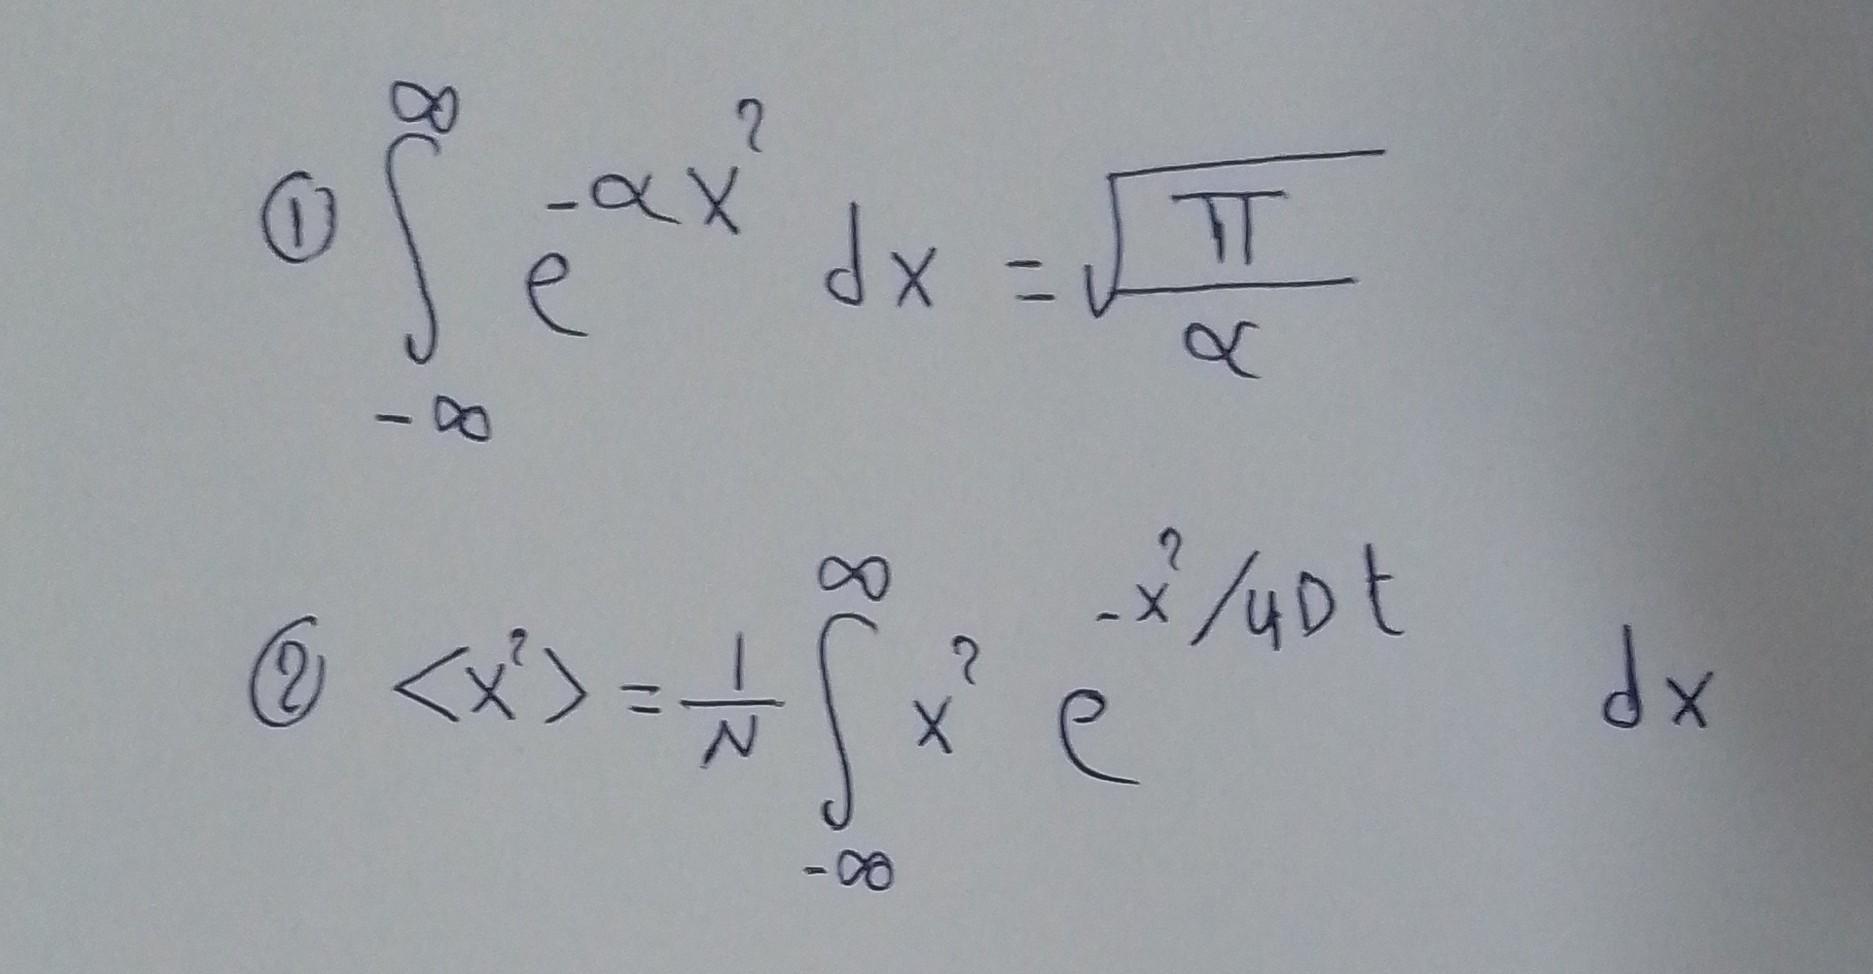 ① ∫_{-∞}^{∞} e^{-αx²} dx = √(π/α)
② <x²> = 1/N ∫_{-∞}^{∞} x² e^{-x²/4Dt} dx